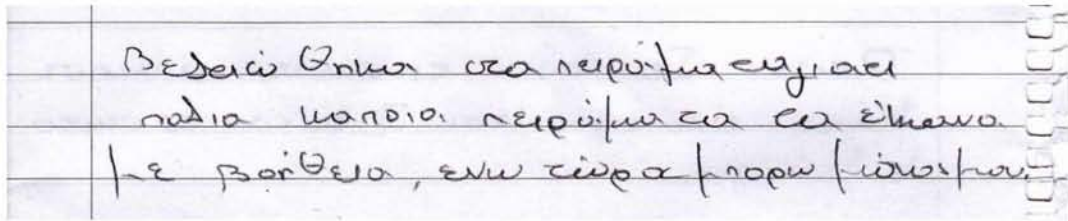 Βελτιώθηκα στα πειράματα γιατί
παλια καποια πειράματα τα έκανα
με βοήθεια, ενω τώρα μπορω μόνος μου.